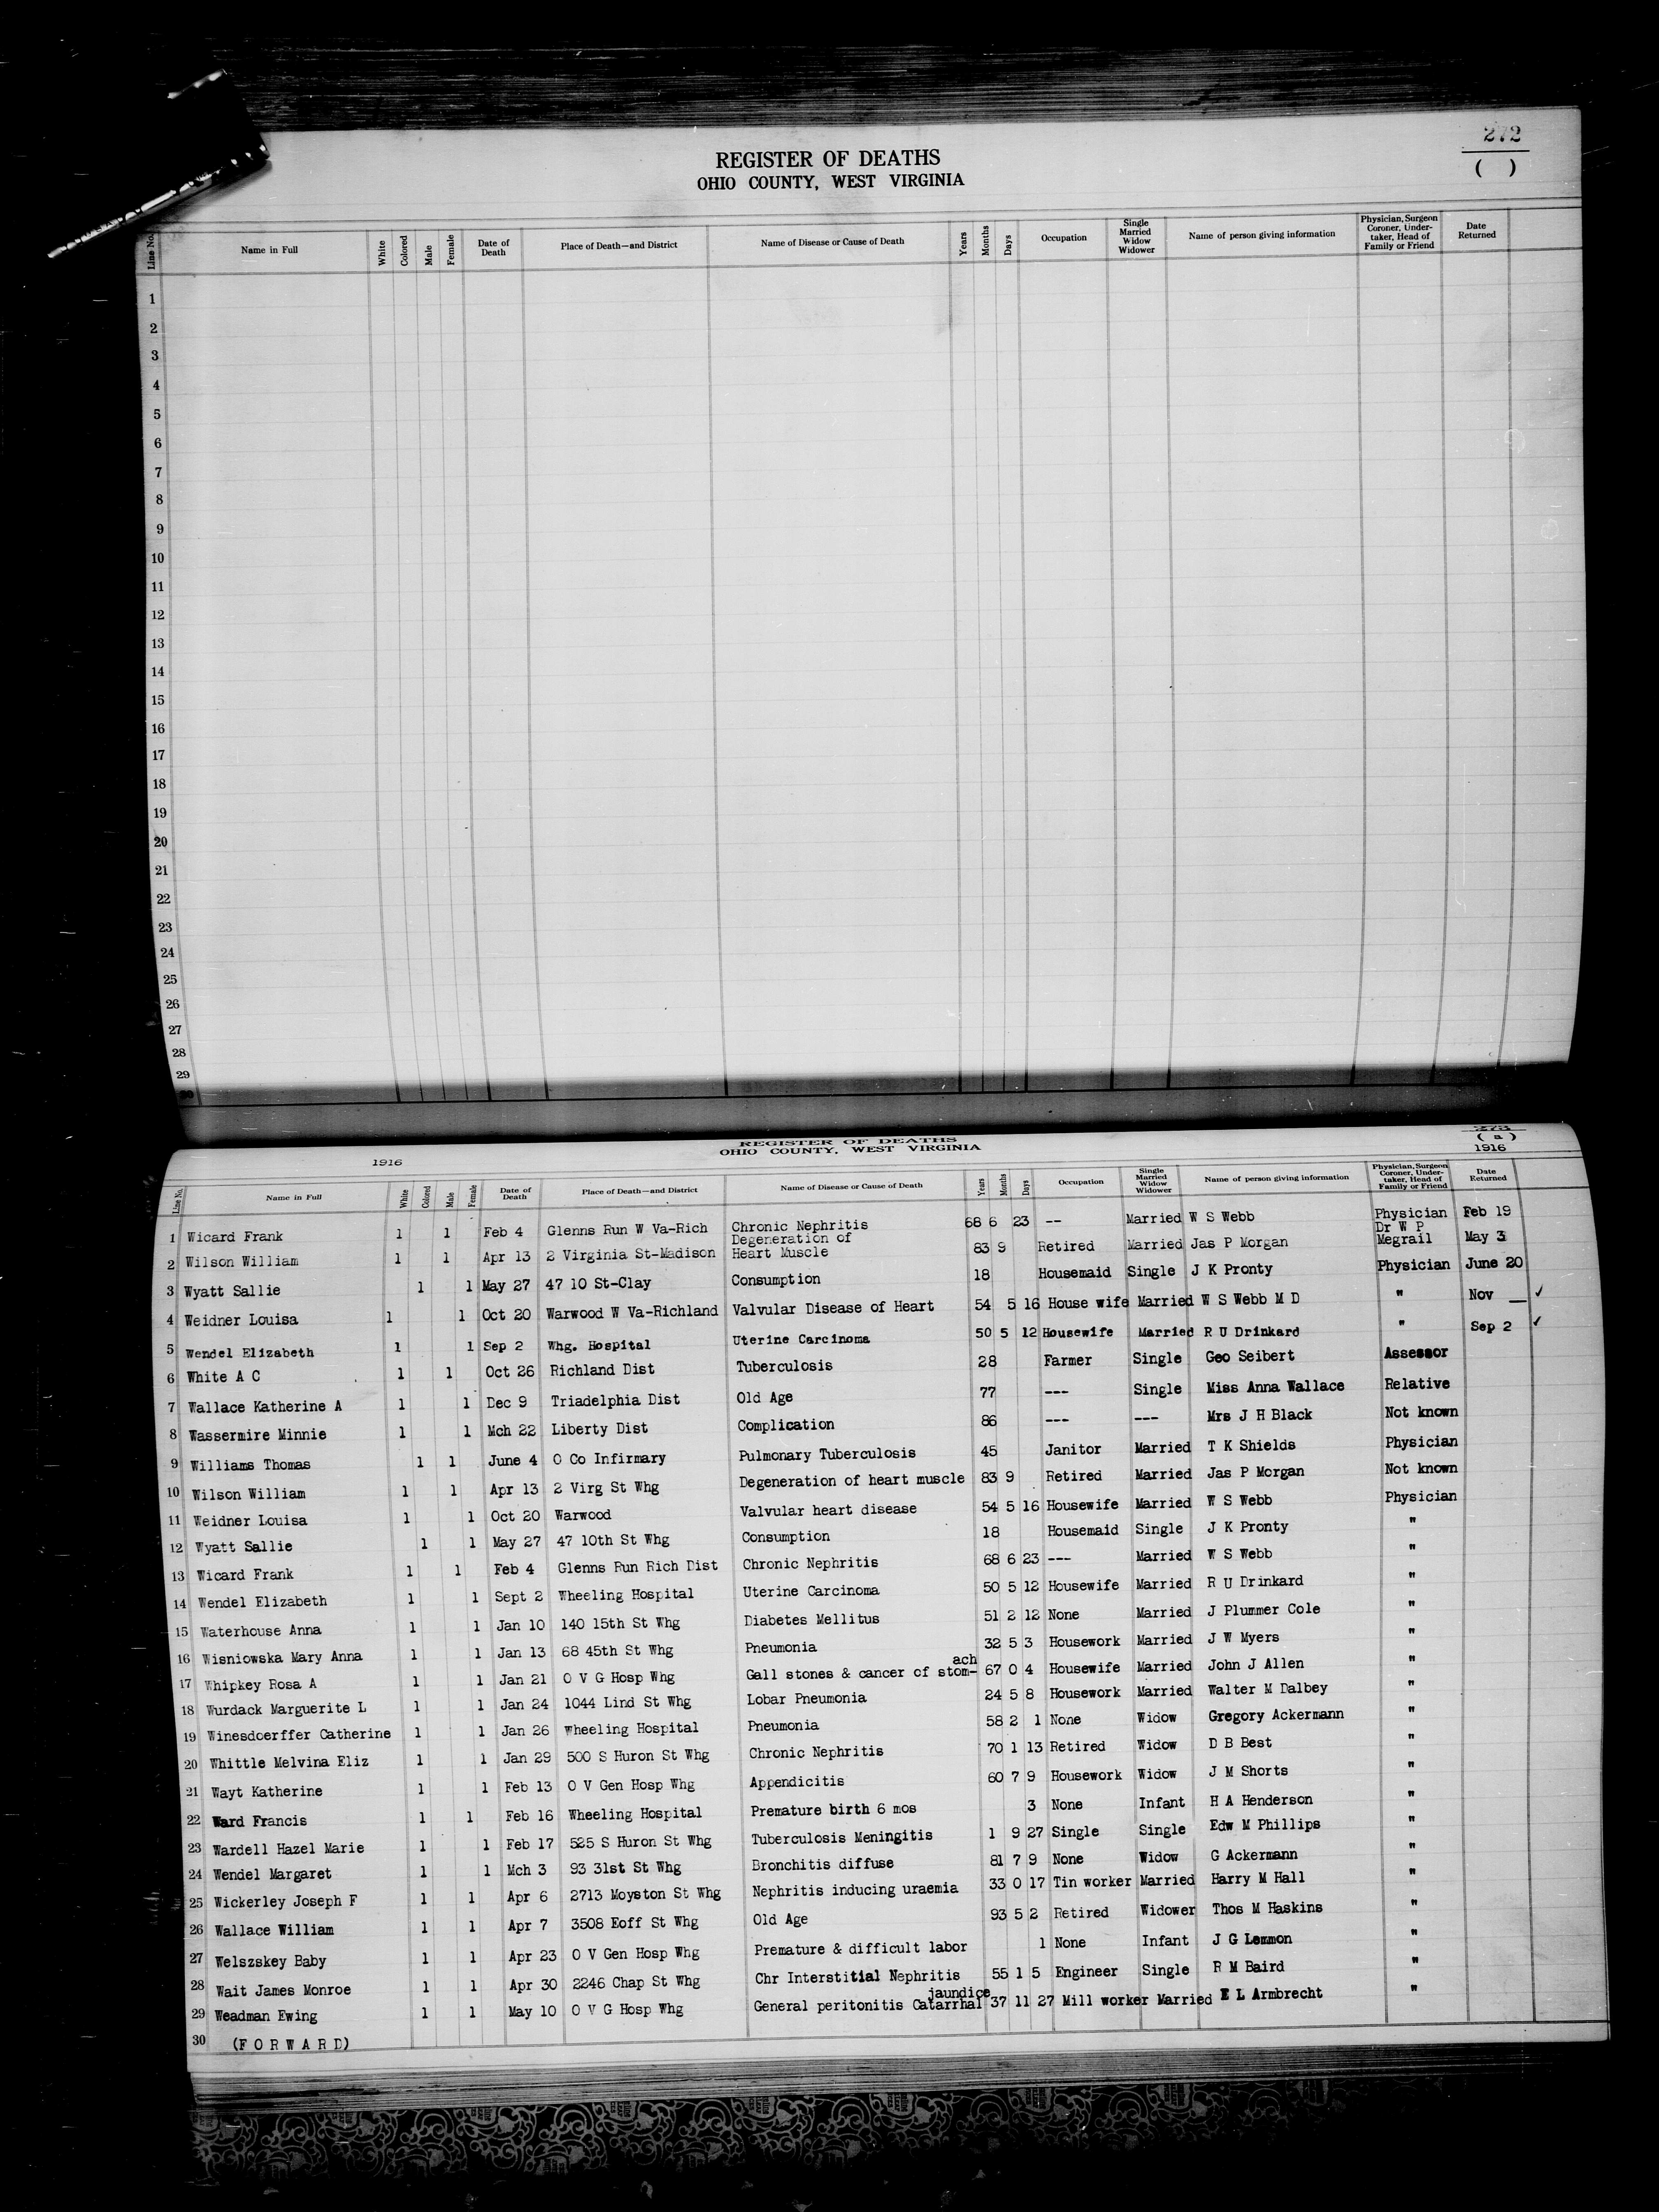 272
( )
REGISTER OF DEATHS
OHIO COUNTY, WEST VIRGINIA
Line No. Name in Full White Colored Male Female Date of Death Place of Death—and District Name of Disease or Cause of Death Years Months Days Occupation Single Married Widow Widower Name of person giving information Physician, Surgeon Coroner, Under- taker, Head of Family or Friend Date Returned
1
2
3
4
5
6
7
8
9
10
11
12
13
14
15
16
17
18
19
20
21
22
23
24
25
26
27
28
29
30
REGISTER OF DEATHS
OHIO COUNTY, WEST VIRGINIA
273
( a )
1916
1916
Line No. Name in Full White Colored Male Female Date of Death Place of Death—and District Name of Disease or Cause of Death Years Months Days Occupation Single Married Widow Widower Name of person giving information Physician, Surgeon Coroner, Under- taker, Head of Family or Friend Date Returned
1 Wicard Frank 1 1 Feb 4 Glenns Run W Va-Rich Chronic Nephritis 68 6 23 -- Married W S Webb Physician Feb 19
2 Wilson William 1 1 Apr 13 2 Virginia St-Madison Degeneration of Heart Muscle 83 9 Retired Married Jas P Morgan Dr W P Megrail May 3
3 Wyatt Sallie 1 1 May 27 47 10 St-Clay Consumption 18 Housemaid Single J K Pronty Physician June 20
4 Weidner Louisa 1 1 Oct 20 Warwood W Va-Richland Valvular Disease of Heart 54 5 16 House wife Married W S Webb M D " Nov __ ✓
5 Wendel Elizabeth 1 1 Sep 2 Whg. Hospital Uterine Carcinoma 50 5 12 Housewife Married R U Drinkard " Sep 2 ✓
6 White A C 1 1 Oct 26 Richland Dist Tuberculosis 28 Farmer Single Geo Seibert Assessor
7 Wallace Katherine A 1 1 Dec 9 Triadelphia Dist Old Age 77 --- Single Miss Anna Wallace Relative
8 Wassermire Minnie 1 1 Mch 22 Liberty Dist Complication 86 --- --- Mrs J H Black Not known
9 Williams Thomas 1 1 June 4 O Co Infirmary Pulmonary Tuberculosis 45 Janitor Married T K Shields Physician
10 Wilson William 1 1 Apr 13 2 Virg St Whg Degeneration of heart muscle 83 9 Retired Married Jas P Morgan Not known
11 Weidner Louisa 1 1 Oct 20 Warwood Valvular heart disease 54 5 16 Housewife Married W S Webb Physician
12 Wyatt Sallie 1 1 May 27 47 10th St Whg Consumption 18 Housemaid Single J K Pronty "
13 Wicard Frank 1 1 Feb 4 Glenns Run Rich Dist Chronic Nephritis 68 6 23 --- Married W S Webb "
14 Wendel Elizabeth 1 1 Sept 2 Wheeling Hospital Uterine Carcinoma 50 5 12 Housewife Married R U Drinkard "
15 Waterhouse Anna 1 1 Jan 10 140 15th St Whg Diabetes Mellitus 51 2 12 None Married J Plummer Cole "
16 Wisniowska Mary Anna 1 1 Jan 13 68 45th St Whg Pneumonia 32 5 3 Housework Married J W Myers "
17 Whipkey Rosa A 1 1 Jan 21 O V G Hosp Whg Gall stones & cancer of stom- ach 67 0 4 Housewife Married John J Allen "
18 Wurdack Marguerite L 1 1 Jan 24 1044 Lind St Whg Lobar Pneumonia 24 5 8 Housework Married Walter M Dalbey "
19 Winesdoerffer Catherine 1 1 Jan 26 Wheeling Hospital Pneumonia 58 2 1 None Widow Gregory Ackermann "
20 Whittle Melvina Eliz 1 1 Jan 29 500 S Huron St Whg Chronic Nephritis 70 1 13 Retired Widow D B Best "
21 Wayt Katherine 1 1 Feb 13 O V Gen Hosp Whg Appendicitis 60 7 9 Housework Widow J M Shorts "
22 Ward Francis 1 1 Feb 16 Wheeling Hospital Premature birth 6 mos 3 None Infant H A Henderson "
23 Wardell Hazel Marie 1 1 Feb 17 525 S Huron St Whg Tuberculosis Meningitis 1 9 27 Single Single Edw M Phillips "
24 Wendel Margaret 1 1 Mch 3 93 31st St Whg Bronchitis diffuse 81 7 9 None Widow G Ackermann "
25 Wickerley Joseph F 1 1 Apr 6 2713 Moyston St Whg Nephritis inducing uraemia 33 0 17 Tin worker Married Harry M Hall "
26 Wallace William 1 1 Apr 7 3508 Eoff St Whg Old Age 93 5 2 Retired Widower Thos M Haskins "
27 Welszskey Baby 1 1 Apr 23 O V Gen Hosp Whg Premature & difficult labor 1 None Infant J G Lemmon "
28 Wait James Monroe 1 1 Apr 30 2246 Chap St Whg Chr Interstitial Nephritis 55 1 5 Engineer Single R M Baird "
29 Weadman Ewing 1 1 May 10 O V G Hosp Whg General peritonitis Catarrhal jaundice 37 11 27 Mill worker Married E L Armbrecht "
30 (F O R W A R D)